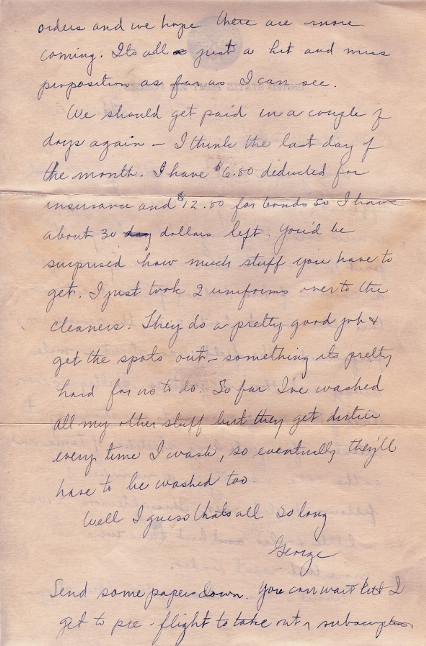 orders and we hope there are more
coming. Its all a just a hit and miss
proposition as far as I can see.
We should get paid in a couple of
days again - I think the last day of
the month. I have $6.80 deducted for
insurance and $12.50 for bonds so I have
about 30 day dollars left. You'd be
surprised how much stuff you have to
get. I just took 2 uniforms over to the
cleaners. They do a pretty good job &
get the spots out - something its pretty
hard for us to do. So far I've washed
all my other stuff but they get dirtier
every time I wash, so eventually they'll
have to be washed too
Well I guess thats all So long
George
Send some papers down. You can wait till I
get to pre-flight to take out a subscription